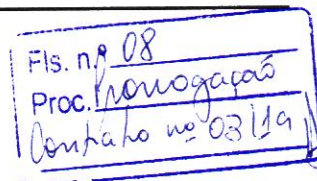 Fls. nº 08
Proc. Prorrogação
Contrato nº 03/19